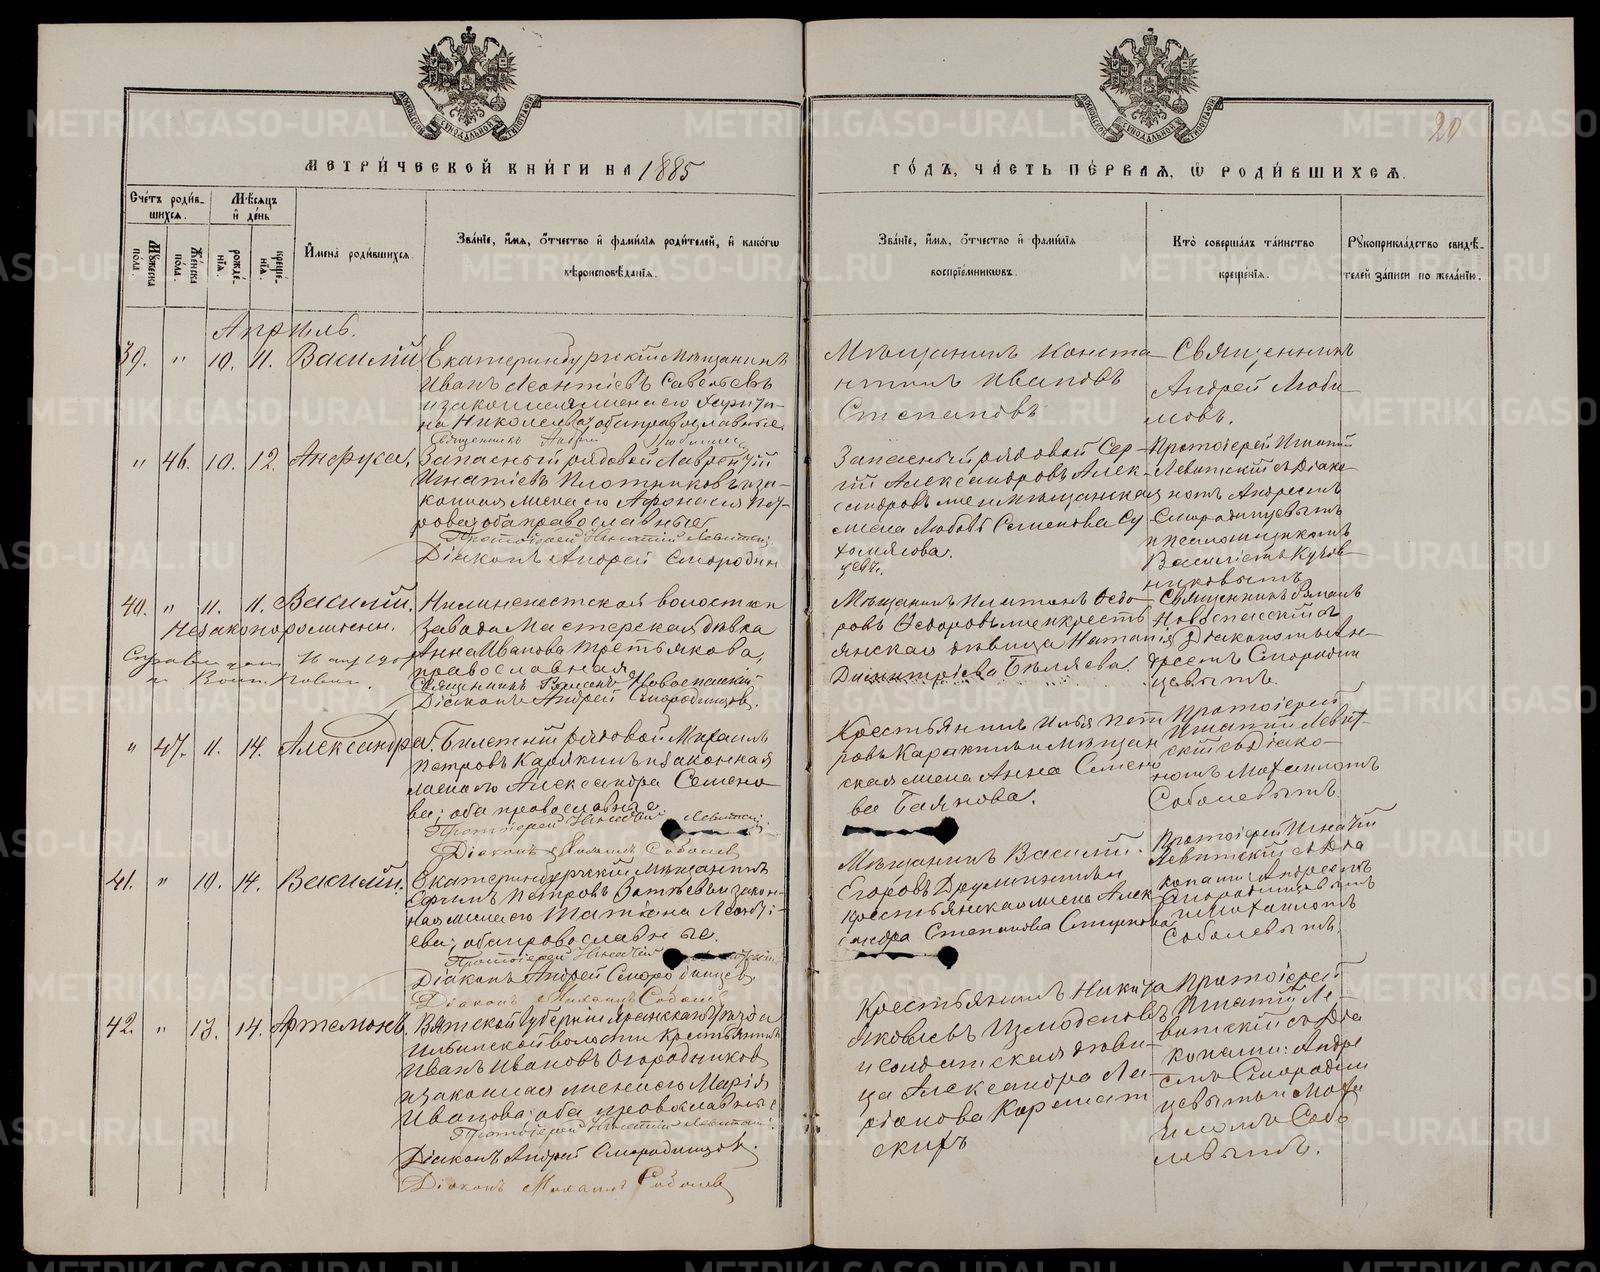 МЕТРИ́ЧЕСКОЙ КНИ́ГИ НА 1885
ГО́ДЪ, ЧА́СТЬ ПЕ́РВАѦ, Ѿ РОДИ́ВШИХСѦ.
20
Сче́тъ роди́в-
шихсѧ.
Мѣсѧцъ
и҆ де́нь
Мꙋжеска
по́ла.
Же́нска
по́ла.
рожде́-
нїѧ.
креще́-
нїѧ.
И҆мена̀ роди́вшихсѧ.
Зва́нїе, и҆́мѧ, ѻ҆́тчество и҆ фами́лїѧ роди́телей, и҆ како́гѡ
вѣроисповѣ́данїѧ.
Зва́нїе, и҆́мѧ, ѻ҆́тчество и҆ фами́лїѧ
воспрїе́мникѡвъ.
Кто̀ соверша́лъ та́инство
креще́нїѧ.
Рꙋкоприкла́дство свидѣ́-
телей за́писи по жела́нїю.
Апрѣль.
39. " 10. 11. Василій
Екатеринбургскій мѣщанинъ
Иванъ Леонтіевъ Савельевъ
и законная жена его Харити-
на Николаева, оба православные.
Священникъ Андрей Любимовъ
Мѣщанинъ Конста-
нтинъ Ивановъ
Степановъ
Священникъ
Андрей Люби-
мовъ.
" 46. 10. 12. Анфуса.
Запасный рядовой Лаврентій
Игнатіевъ Плотниковъ и за-
конная жена его Афонасія Пет-
рова; оба православные
Протоіерей Игнатій Левитскій
Діаконъ Андрей Смородин
цевъ.
Запасный рядовой Сер-
гій Александровъ Алек-
сандровъ же и мѣщанская
жена Любовь Семенова Су
хомякова.
Протоіерей Игнатій
Левитскій съ Діако-
номъ Андреемъ
Смородинцевымъ
и псаломщикомъ
40. " 11. 11. Василій.
Незаконорожденн.
Нижнеисетской волости и
завода мастерская дѣвка
Анна Иванова Третьякова,
православная
Священникъ Романъ Новоспасскій
Діаконъ Андрей Смородинцовъ.
Мѣщанинъ Платонъ Ѳедо-
ровъ Ѳедоровъ же и кресть
янская дѣвица Наталія
Димитріева Бѣляева.
Священникъ Романъ
Новоспасскій съ
Діакономъ Ан-
дреемъ Смородин
цевымъ.
" 47. 11. 14. Александра.
Билетный рядовой Михаилъ
Петровъ Карякинъ и законная
жена его Александра Семено
ва; оба православные.
Протоіерей Игнатій Левитскій
Діаконъ Михаилъ Соболев
Крестьянинъ Илья Пет
ровъ Карякинъ и мѣщан
ская жена Анна Семено
ва Баянова.
Протоіерей
Игнатій Левит-
скій съ Діако-
номъ Михаиломъ
Соболевымъ.
41. " 10. 14. Василій.
Екатеринбургскій мѣщанинъ
Сергій Петровъ и закон-
ная жена его Татіана Леонті-
ева; оба православные.
Протоіерей Игнатій
Діаконъ Андрей Смородинцев
Діаконъ Михаилъ Соболев
Мѣщанинъ Василій
Егоровъ Дружининъ и
крестьянская жена Алек
сандра Степанова Смирнова
Протоіерей Игнатій
Левитскій съ Діа
конами: Андреемъ
Смородинцевымъ
и Михаиломъ
Соболевымъ.
42. " 13. 14. Артемонъ
Вятской губерніи Яранскаго уѣзда
Ильинской волости крестьянинъ
Иванъ Ивановъ Огородников
и законная жена его Марія
Иванова; оба православные
Протоіерей Игнатій Левитскій
Діаконъ Андрей Смородинцовъ.
Діаконъ Михаилъ Соболев
Крестьянинъ Никита
Яковлевъ Изможеновъ
и солдатская дѣви-
ца Александра Ла-
ріонова Кармат
скихъ
Протоіерей
Игнатій Ле-
витскій съ Діа
конами: Андре
емъ Смородин
цевымъ и Миха
иломъ Собо
левымъ.